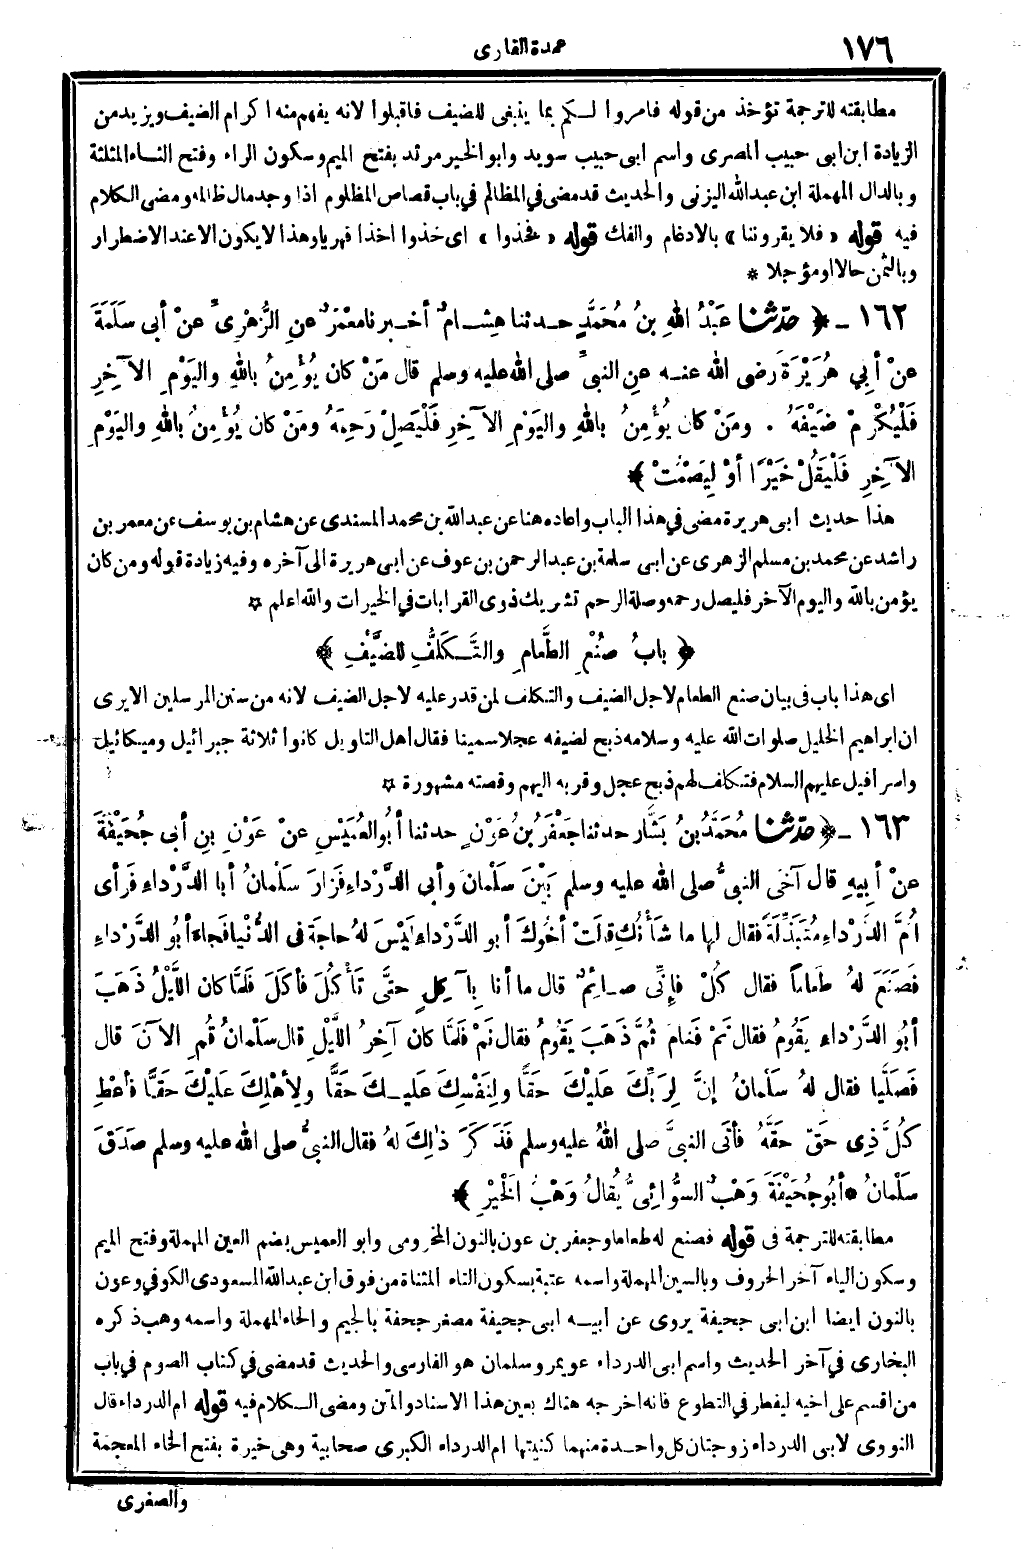 ١٧٦
عمدة القارى
مطابقته للترجمة تؤخذ من قوله فامروا لكم بما ينبغى للضيف فاقبلوا لانه يفهم منه اكرام الضيف ويزيد من
الزيادة ابن ابى حبيب المصرى واسم ابى حبيب سويد وابو الخير مرثد بفتح الميم وسكون الراء وفتح الثاء المثلثة
وبالدال المهملة ابن عبدالله اليزنى والحديث قد مضى في المظالم في باب قصاص المظلوم اذا وجد مال ظالمه ومضى الكلام
فيه قوله « فلا يقروننا » بالادغام والفك قوله « فخذوا » اى خذوا اخذا قهريا وهذا لا يكون الا عند الاضطرار
وبالثمن حالا او مؤجلا *
١٦٢ - ﴿ حَدَّثنا عَبْدُ اللهِ بنُ مُحَمَّدٍ حدثنا هِشامٌ أخبرنا مَعْمَرٌ عنِ الزُّهْرِىِّ عنْ أبى سَلَمَةَ
عنْ أبِي هُرَيْرَةَ رضى الله عنه عنِ النبىِّ صلى الله عليه وسلم قال مَنْ كان يُؤْمِنُ باللهِ واليَوْمِ الآخِرِ
فَلْيُكْرِمْ ضَيْفَهُ . ومَنْ كان يُؤْمِنُ باللهِ واليَوْمِ الآخِرِ فَلْيَصِلْ رَحِمَهُ ومَنْ كان يُؤْمِنُ باللهِ واليَوْمِ
الآخِرِ فَلْيَقُلْ خَيْرًا أوْ لِيَصْمُتْ ﴾
هذا حديث ابى هريرة مضى في هذا الباب واعاده هنا عن عبدالله بن محمد المسندى عن هشام بن يوسف عن معمر بن
راشد عن محمد بن مسلم الزهرى عن ابى سلمة بن عبد الرحمن بن عوف عن ابى هريرة الى آخره وفيه زيادة قوله ومن كان
يؤمن بالله واليوم الآخر فليصل رحمه وصلة الرحم تشريك ذوى القرابات في الخيرات والله اعلم ☆
﴿ بابُ صُنْعِ الطَّعامِ والتَّكَلُّفِ للضَّيْفِ ﴾
اى هذا باب فى بيان صنع الطعام لاجل الضيف والتكلف لمن قدر عليه لاجل الضيف لانه من سنن المرسلين الا يرى
ان ابراهيم الخليل صلوات الله عليه وسلامه ذبح لضيفه عجلا سمينا فقال اهل التاويل كانوا ثلاثة جبرائيل وميكائيل
واسرافيل عليهم السلام فتكلف لهم ذبح عجل وقربه اليهم وقصته مشهورة ☆
١٦٣ - ﴿ حَدَّثنا مُحَمَّدُ بنُ بَشَّارٍ حدثنا جَعْفَرُ بنُ عَوْنٍ حدثنا أبُو العُمَيْسِ عنْ عَوْنِ بنِ أبى جُحَيْفَةَ
عنْ أبِيهِ قال آخَى النبىُّ صلى الله عليه وسلم بَيْنَ سَلْمانَ وأبى الدَّرْداءِ فَزارَ سَلْمانُ أبا الدَّرْداءِ فَرأى
أُمَّ الدَّرْداءِ مُتَبَذِّلَةً فقال لها ما شأْنُكِ قالَتْ أخُوكَ أبو الدَّرْداءِ لَيْسَ لهُ حاجَةٌ فى الدُّنْيا فَجاءَ أبُو الدَّرْداءِ
فَصَنَعَ لهُ طَعامًا فقال كُلْ فإنِّى صائِمٌ قال ما أنا بِآكِلٍ حتَّى تَأْكُلَ فأكَلَ فَلَمَّا كان اللَّيْلُ ذَهَبَ
أبُو الدَّرْداءِ يَقُومُ فقال نَمْ فَنامَ ثُمَّ ذَهَبَ يَقُومُ فقال نَمْ فَلَمَّا كان آخِرُ اللَّيْلِ قال سَلْمانُ قُمِ الآنَ قال
فَصَلَّيا فقال لهُ سَلْمانُ إنَّ لِرَبِّكَ عَلَيْكَ حَقًّا ولِنَفْسِكَ عَلَيْكَ حَقًّا ولِأهْلِكَ عَلَيْكَ حَقًّا فأعْطِ
كُلَّ ذِى حَقٍّ حَقَّهُ فأتَى النبىَّ صلى اللهُ عليه وسلم فَذَكَرَ ذٰلِكَ لهُ فقال النبىُّ صلى الله عليه وسلم صَدَقَ
سَلْمانُ * أبُو جُحَيْفَةَ وَهْبٌ السُّوائِىُّ يُقالُ وَهْبُ الخَيْرِ ﴾
مطابقته للترجمة فى قوله فصنع له طعاما وجعفر بن عون بالنون المخزومى وابو العميس بضم العين المهملة وفتح الميم
وسكون الياء آخر الحروف وبالسين المهملة واسمه عتبة بسكون التاء المثناة من فوق ابن عبدالله المسعودى الكوفى وعون
بالنون ايضا ابن ابى جحيفة يروى عن ابيه ابى جحيفة مصغر جحفة بالجيم والحاء المهملة واسمه وهب ذكره
البخارى في آخر الحديث واسم ابى الدرداء عويمر وسلمان هو الفارسى والحديث قد مضى في كتاب الصوم في باب
من اقسم على اخيه ليفطر في التطوع فانه اخرجه هناك بعين هذا الاسناد والمتن ومضى الكلام فيه قوله ام الدرداء قال
النووى لابى الدرداء زوجتان كل واحدة منهما كنيتها ام الدرداء الكبرى صحابية وهى خيرة بفتح الخاء المعجمة
والصغرى